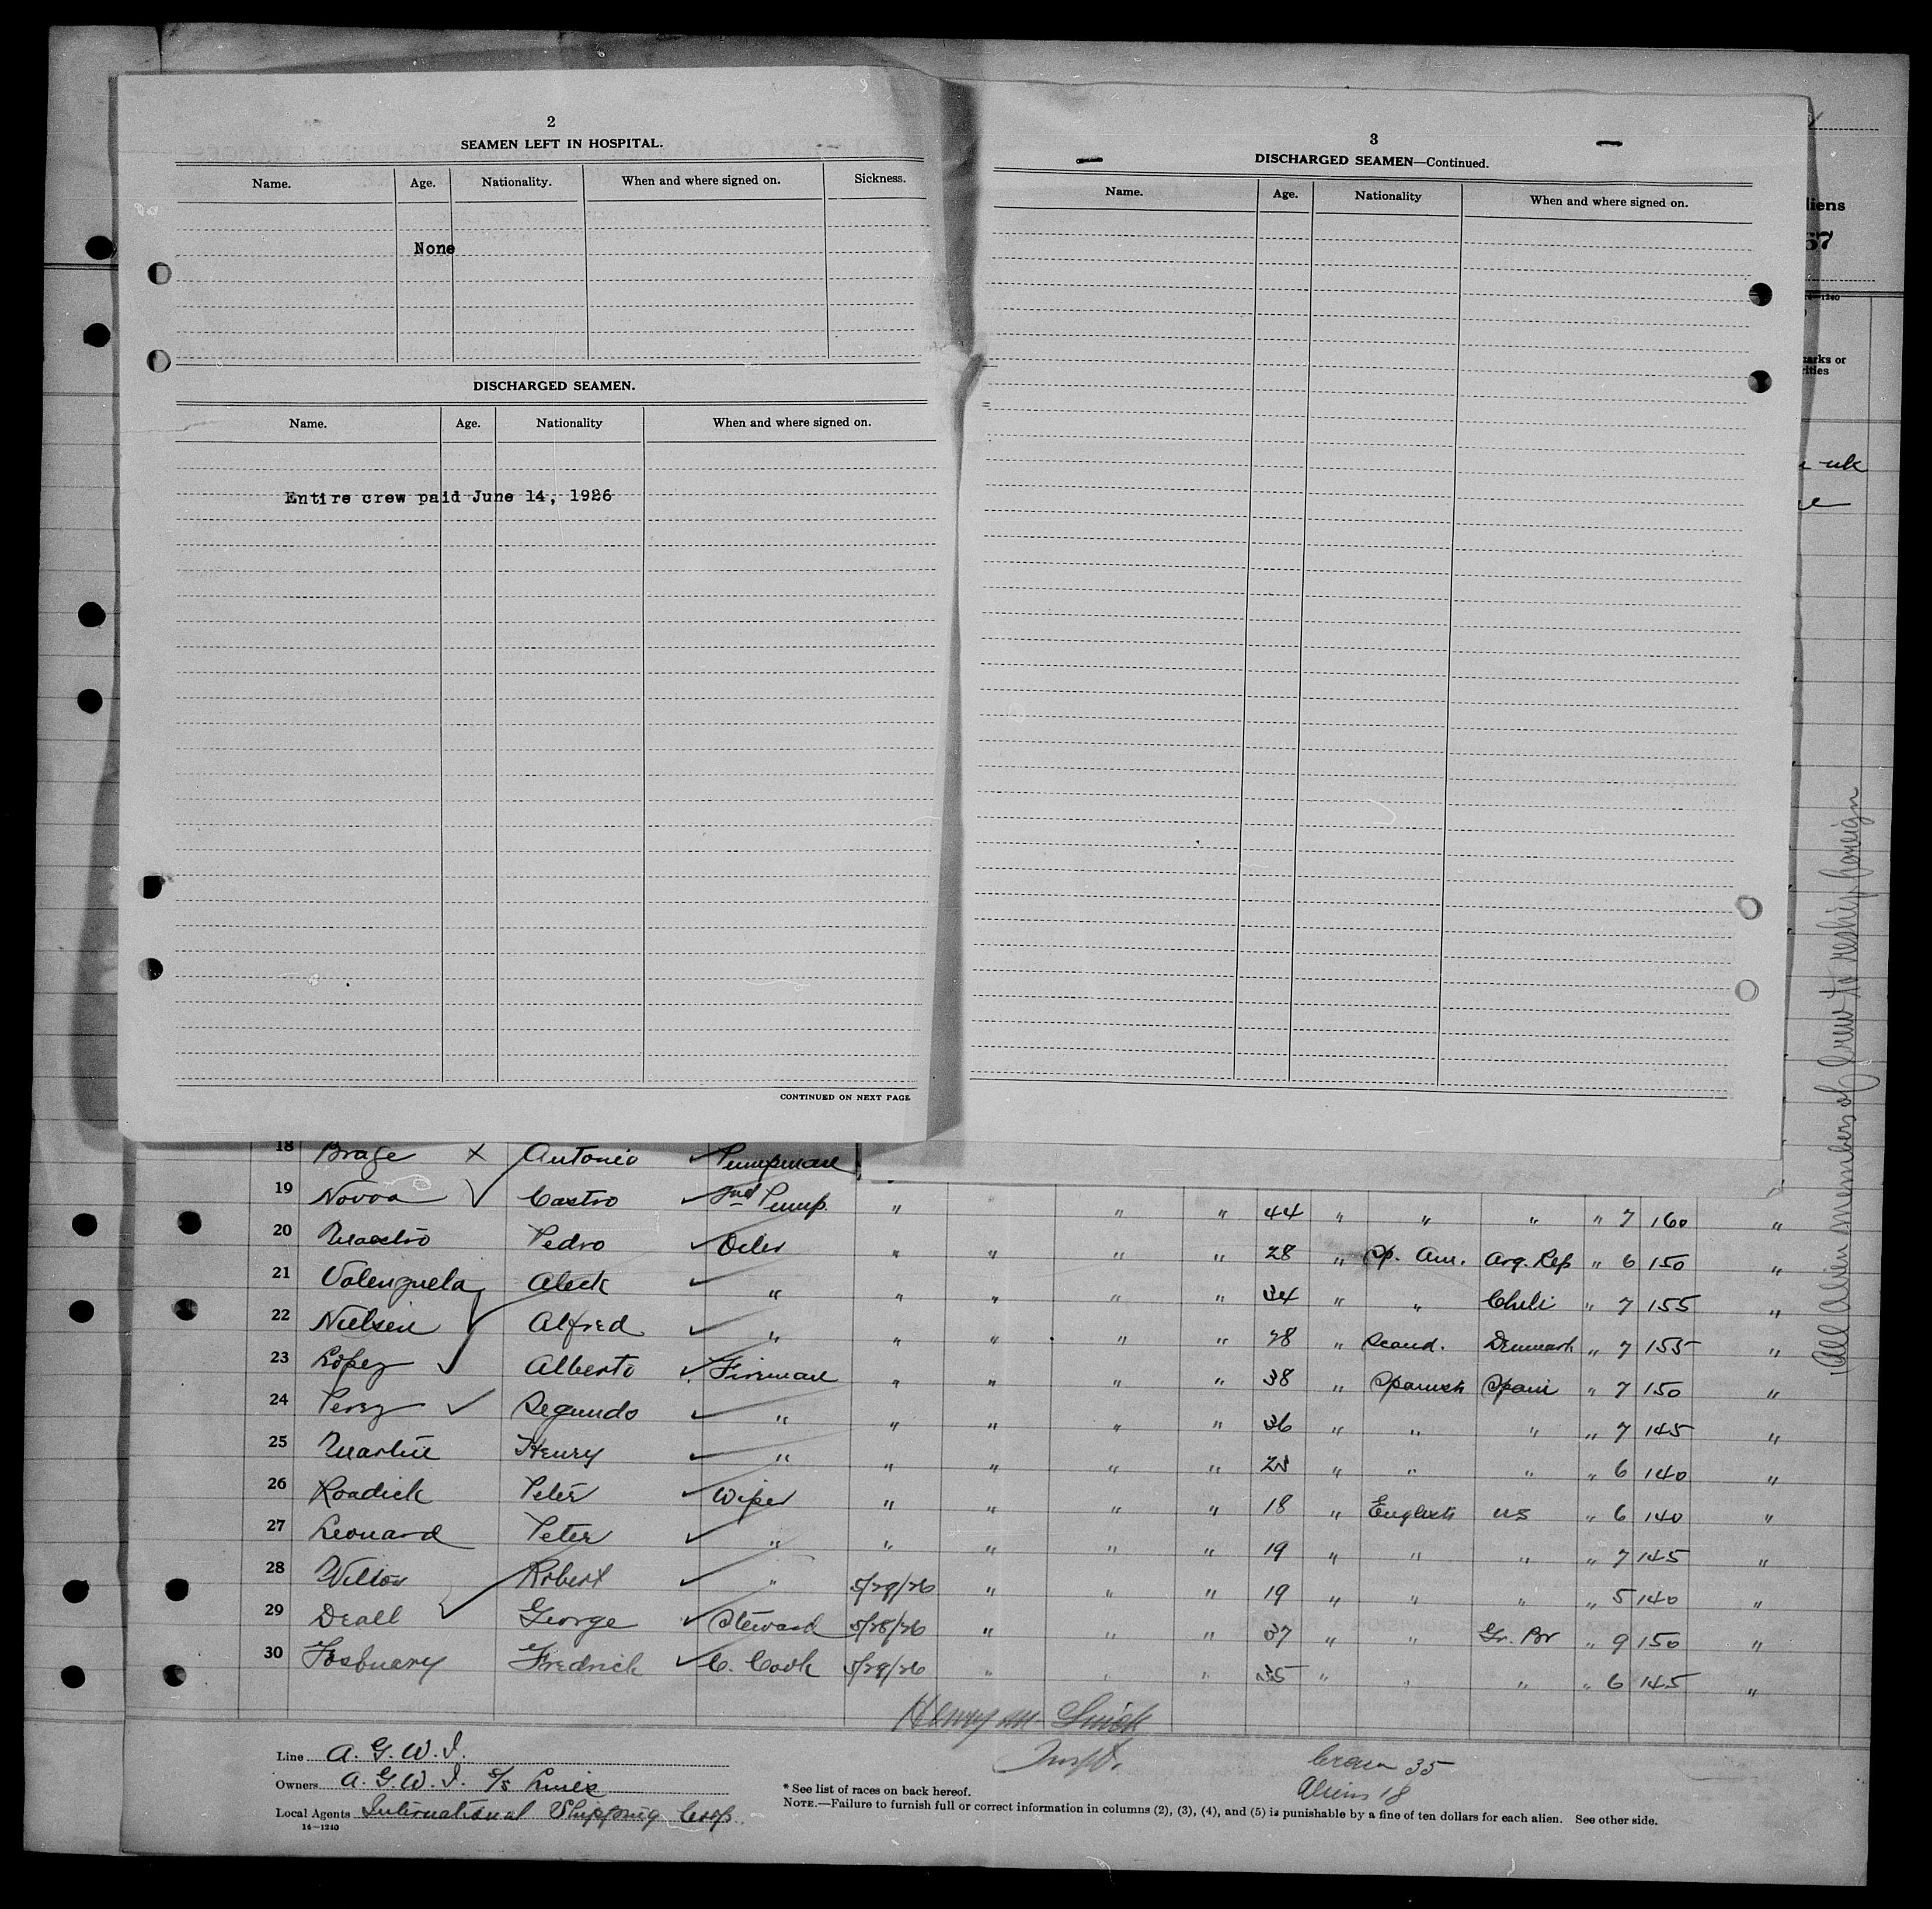 2
SEAMEN LEFT IN HOSPITAL.
Name. Age. Nationality. When and where signed on. Sickness.
None
DISCHARGED SEAMEN.
Name. Age. Nationality When and where signed on.
Entire crew paid June 14, 1926
CONTINUED ON NEXT PAGE
3
DISCHARGED SEAMEN—Continued.
Name. Age. Nationality When and where signed on.
liens
67
14—1240
arks or
rities
All Alien members of Crew to reship foreign
18 Brage x Antonio ✓ Pumpman
19 Novoa ✓ Castro ✓ 2nd Pump. " " " 44 " " " " 7 160 "
20 Maestro Pedro ✓ Oiler " " " " 28 " Sp. Am. Arg. Rep " 6 150 "
21 Valenzuela Aleck ✓ " " " " " 34 " " Chili " 7 155 "
22 Nielsen ✓ Alfred ✓ " " " " " 28 " Scand. Denmark " 7 155 "
23 Lopez ✓ Alberto ✓ Fireman " " " " 38 " Spanish Spain " 7 150 "
24 Perez ✓ Segundo ✓ " " " " " 36 " " " " 7 145 "
25 Martin Henry ✓ " " " " " 23 " " " " 6 140 "
26 Roadick Peter ✓ Wiper " " " " 18 " English US " 6 140 "
27 Leonard Peter ✓ " " " " " 19 " " " " 7 145 "
28 Wilton Robert ✓ " 5/29/26 " " " 19 " " " " 5 140 "
29 Deall ✓ George ✓ Steward 5/28/26 " " " 37 " " Gr. Br " 9 150 "
30 Fosbuary Fredrick ✓ C. Cook 5/29/26 " " " 35 " " " " 6 145 "
Henry M.
Insp.
Crew 35
Aliens 18
Line A. G. W. I.
Owners A. G. W. I. S/S Lines
Local Agents International Shipping Corp.
14—1240
* See list of races on back hereof.
NOTE.—Failure to furnish full or correct information in columns (2), (3), (4), and (5) is punishable by a fine of ten dollars for each alien. See other side.